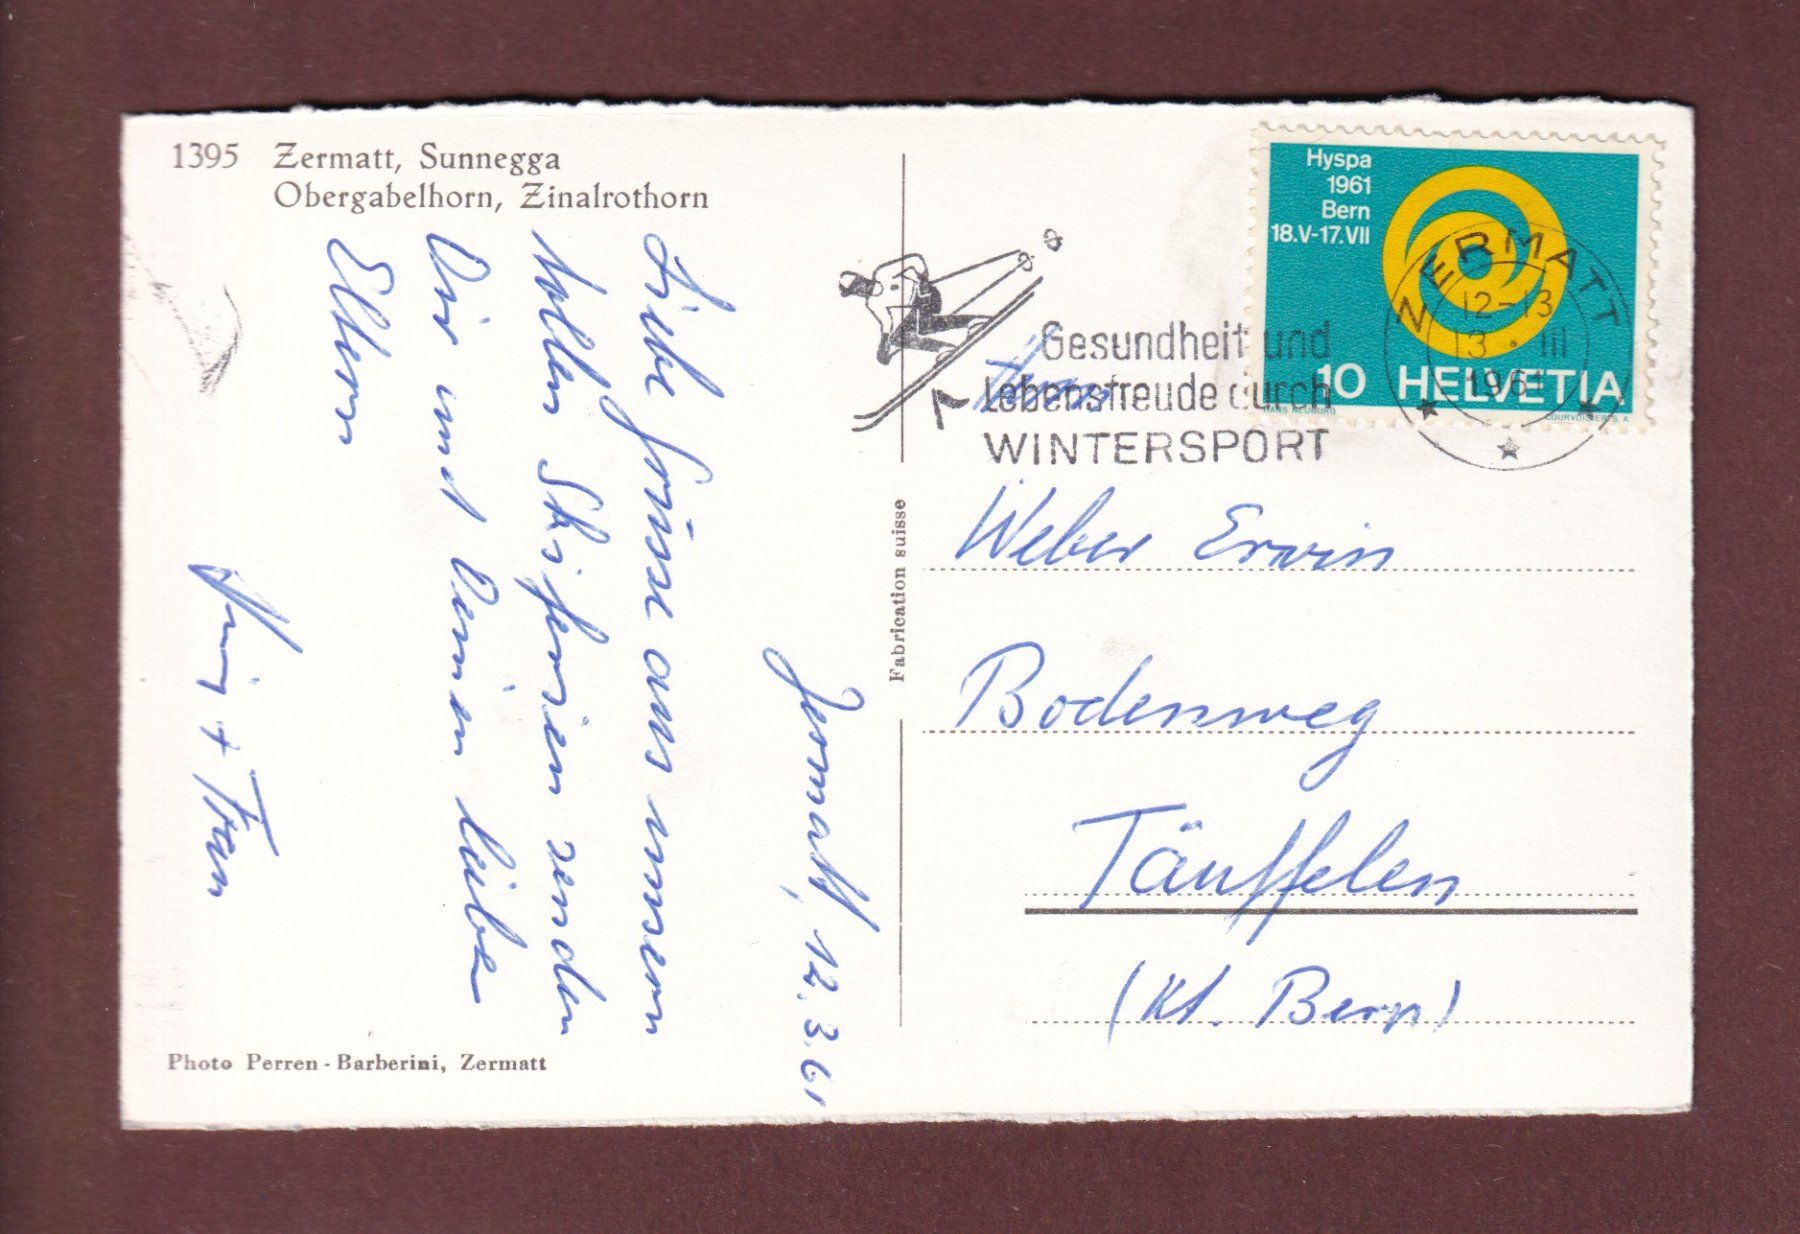 1395 Zermatt, Sunnegga
Obergabelhorn, Zinalrothorn
Zermatt, 12.3.61
Liebe Grüsse aus unsern
tollen Skiferien senden
Dir und Deinen lieben
Eltern
+
Photo Perren - Barberini, Zermatt
Fabrication suisse
Gesundheit und
Lebensfreude durch
WINTERSPORT
Hyspa
1961
Bern
18.V-17.VII
10 HELVETIA
HANS NEUBURG
COURVOISIER S.A.
ZERMATT
12-13
13. III
1961
Herrn
Weber Erwin
Bodenweg
Täuffelen
(Kt. Bern)